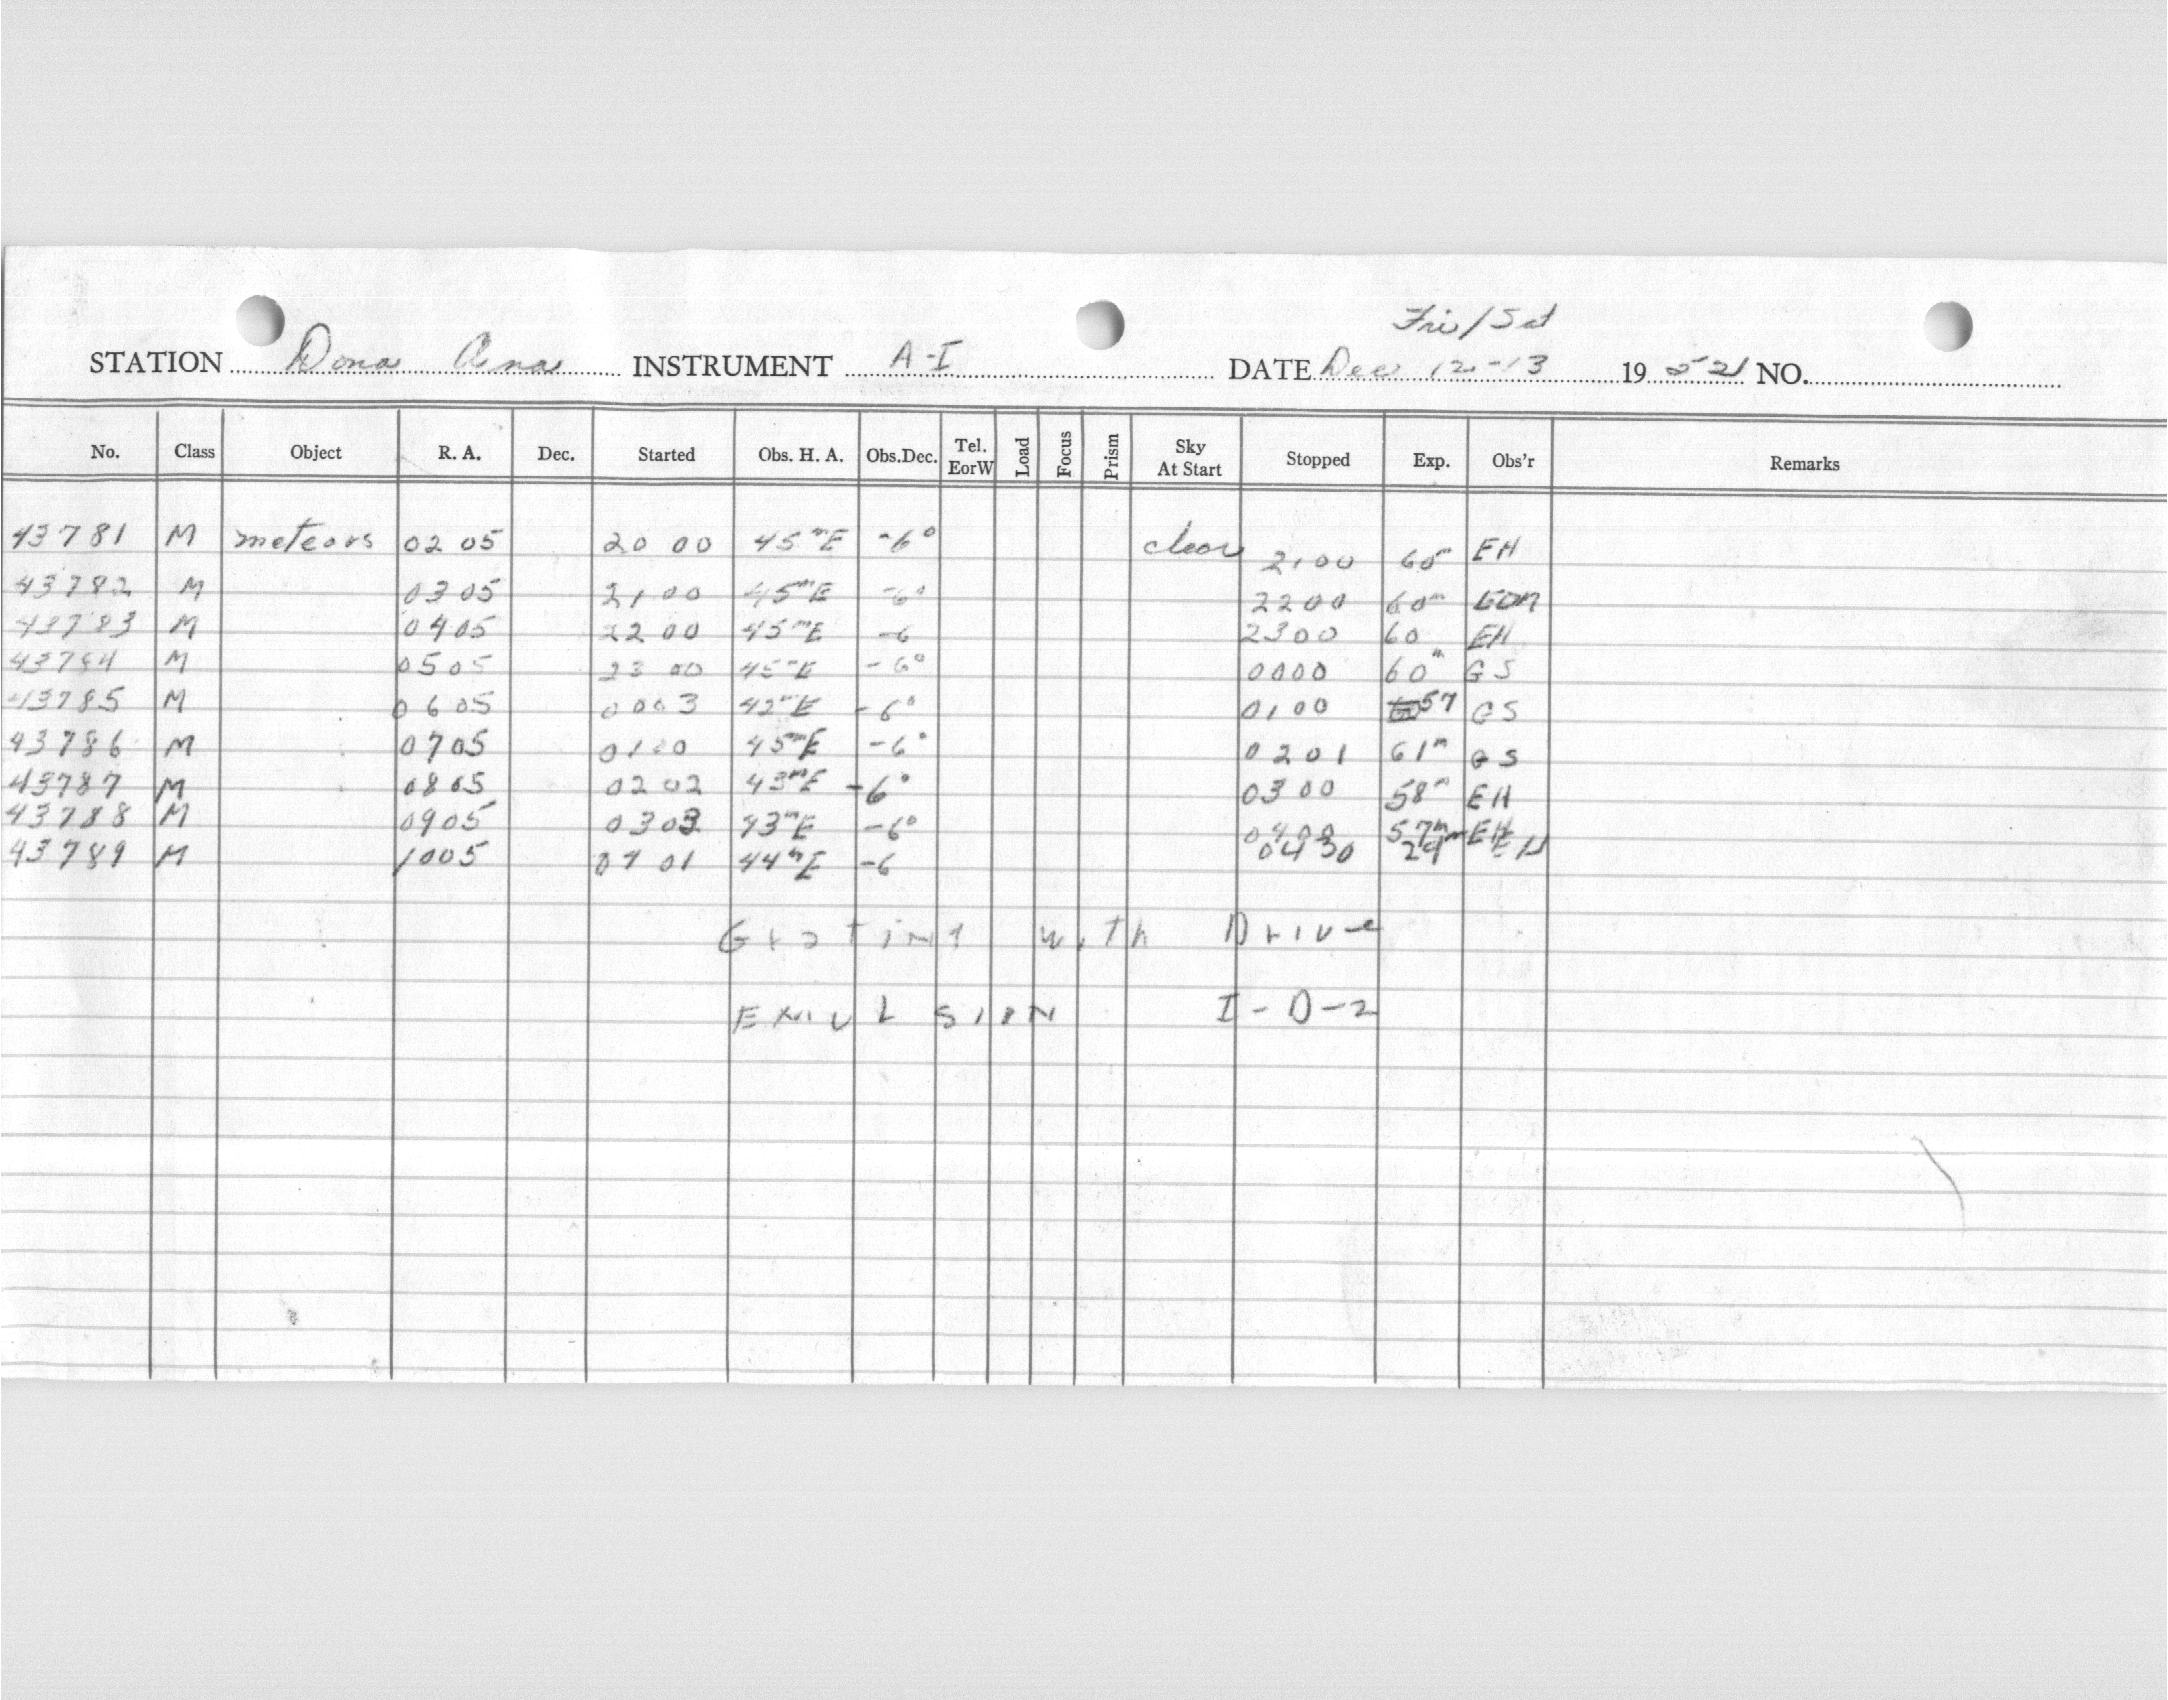 Fri/Sat
STATION Dona Ana INSTRUMENT A-I DATE Dec 12-13 19 52 NO.
No. Class Object R. A. Dec. Started Obs. H. A. Obs.Dec. Tel. EorW Load Focus Prism Sky At Start Stopped Exp. Obs'r Remarks
43781 M meteors 02 05 20 00 45mE -6° clear 2100 60m EH
43782 M 0305 2100 45mE -6° 2200 60m EOM
43783 M 0405 2200 45mE -6 2300 60 EH
43784 M 0505 2300 45mE -6° 0000 60m GS
43785 M 0605 0003 42mE -6° 0100 57 GS
43786 M 0705 0100 45mE -6° 0201 61m GS
43787 M 0805 0202 43mE -6° 0300 58m EH
43788 M 0905 0303 43mE -6° 0400 57m EH
43789 M 1005 0401 44mE -6 0430 29m EH
Grating with Drive
EMULSION I-D-2